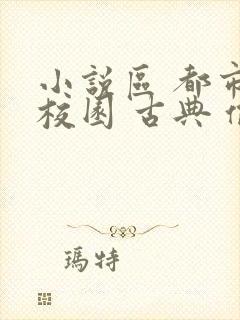 小說區 都市
校園 古典
瑪特